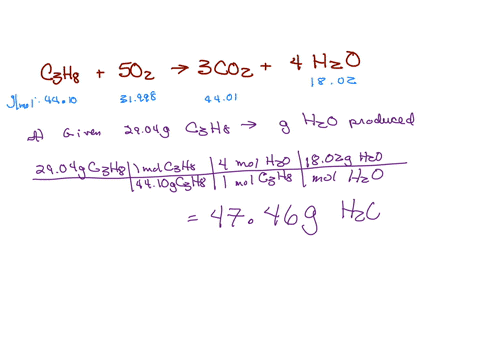 C3H8 + 5O2 → 3CO2 + 4 H2O
g/mol: 44.10 31.998 44.01 18.02
A) Given 29.04g C3H8 → g H2O produced
29.04g C3H8 | 1 mol C3H8 | 4 mol H2O | 18.02g H2O
44.10g C3H8 | 1 mol C3H8 | mol H2O
= 47.46g H2O